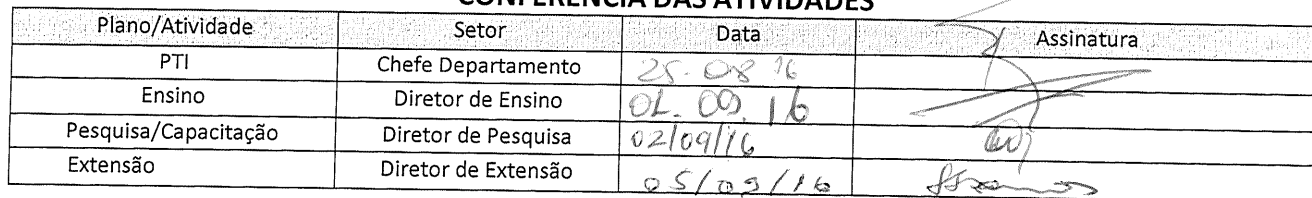 CONFERÊNCIA DAS ATIVIDADES
Plano/Atividade Setor Data Assinatura
PTI Chefe Departamento 25.08 16
Ensino Diretor de Ensino 01.09.16
Pesquisa/Capacitação Diretor de Pesquisa 02/09/16
Extensão Diretor de Extensão 05/09/16